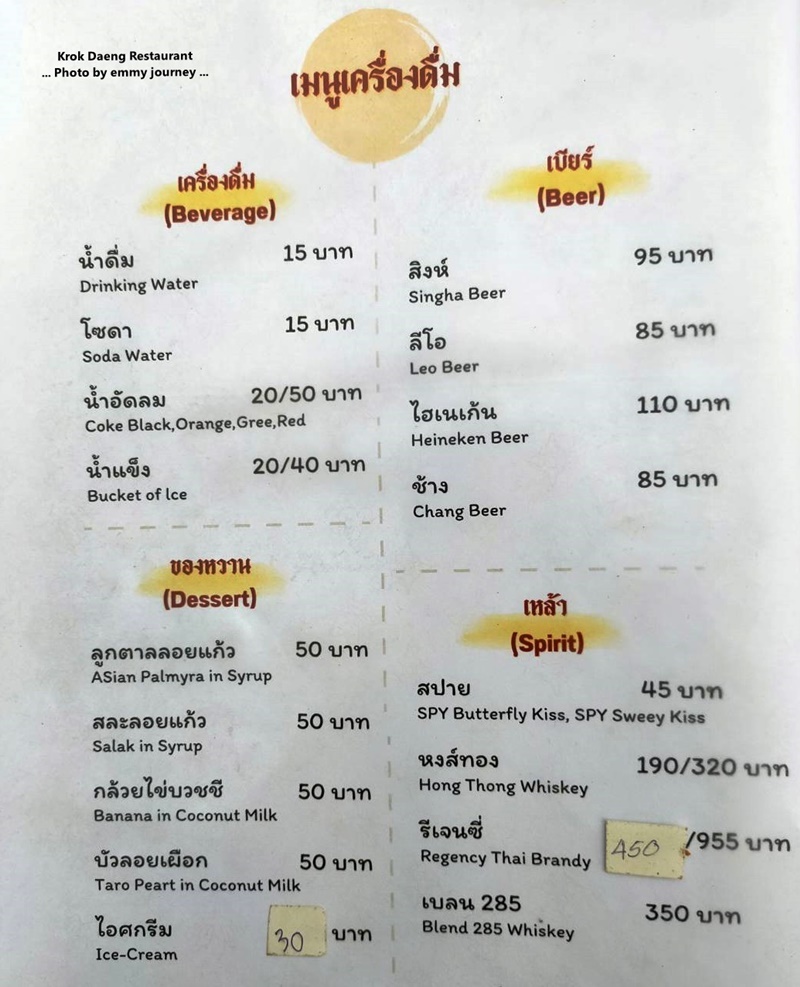 Krok Daeng Restaurant
... Photo by emmy journey ...
เมนูเครื่องดื่ม
เครื่องดื่ม
(Beverage)
น้ำดื่ม 15 บาท
Drinking Water
โซดา 15 บาท
Soda Water
น้ำอัดลม 20/50 บาท
Coke Black,Orange,Gree,Red
น้ำแข็ง 20/40 บาท
Bucket of lce
ของหวาน
(Dessert)
ลูกตาลลอยแก้ว 50 บาท
ASian Palmyra in Syrup
สละลอยแก้ว 50 บาท
Salak in Syrup
กล้วยไข่บวชชี 50 บาท
Banana in Coconut Milk
บัวลอยเผือก 50 บาท
Taro Peart in Coconut Milk
ไอศกรีม 30 บาท
Ice-Cream
เบียร์
(Beer)
สิงห์ 95 บาท
Singha Beer
ลีโอ 85 บาท
Leo Beer
ไฮเนเก้น 110 บาท
Heineken Beer
ช้าง 85 บาท
Chang Beer
เหล้า
(Spirit)
สปาย 45 บาท
SPY Butterfly Kiss, SPY Sweey Kiss
หงส์ทอง 190/320 บาท
Hong Thong Whiskey
รีเจนซี่ 450 /955 บาท
Regency Thai Brandy
เบลน 285 350 บาท
Blend 285 Whiskey